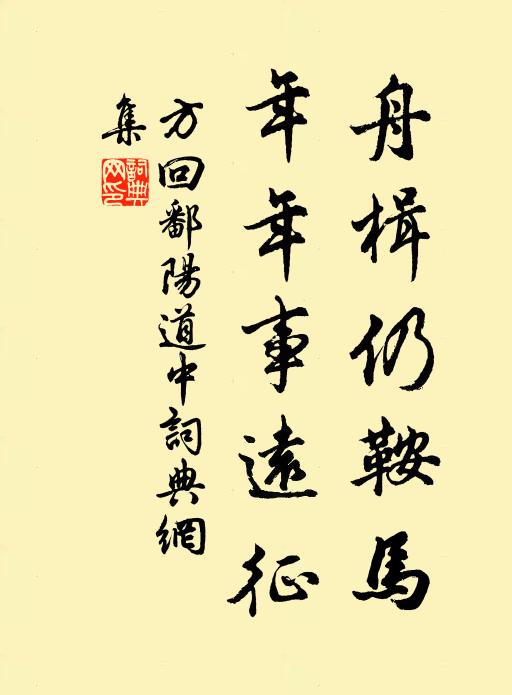 舟楫仍鞍馬
年年事遠征
方回鄱陽道中詞典網
集
詞典網印